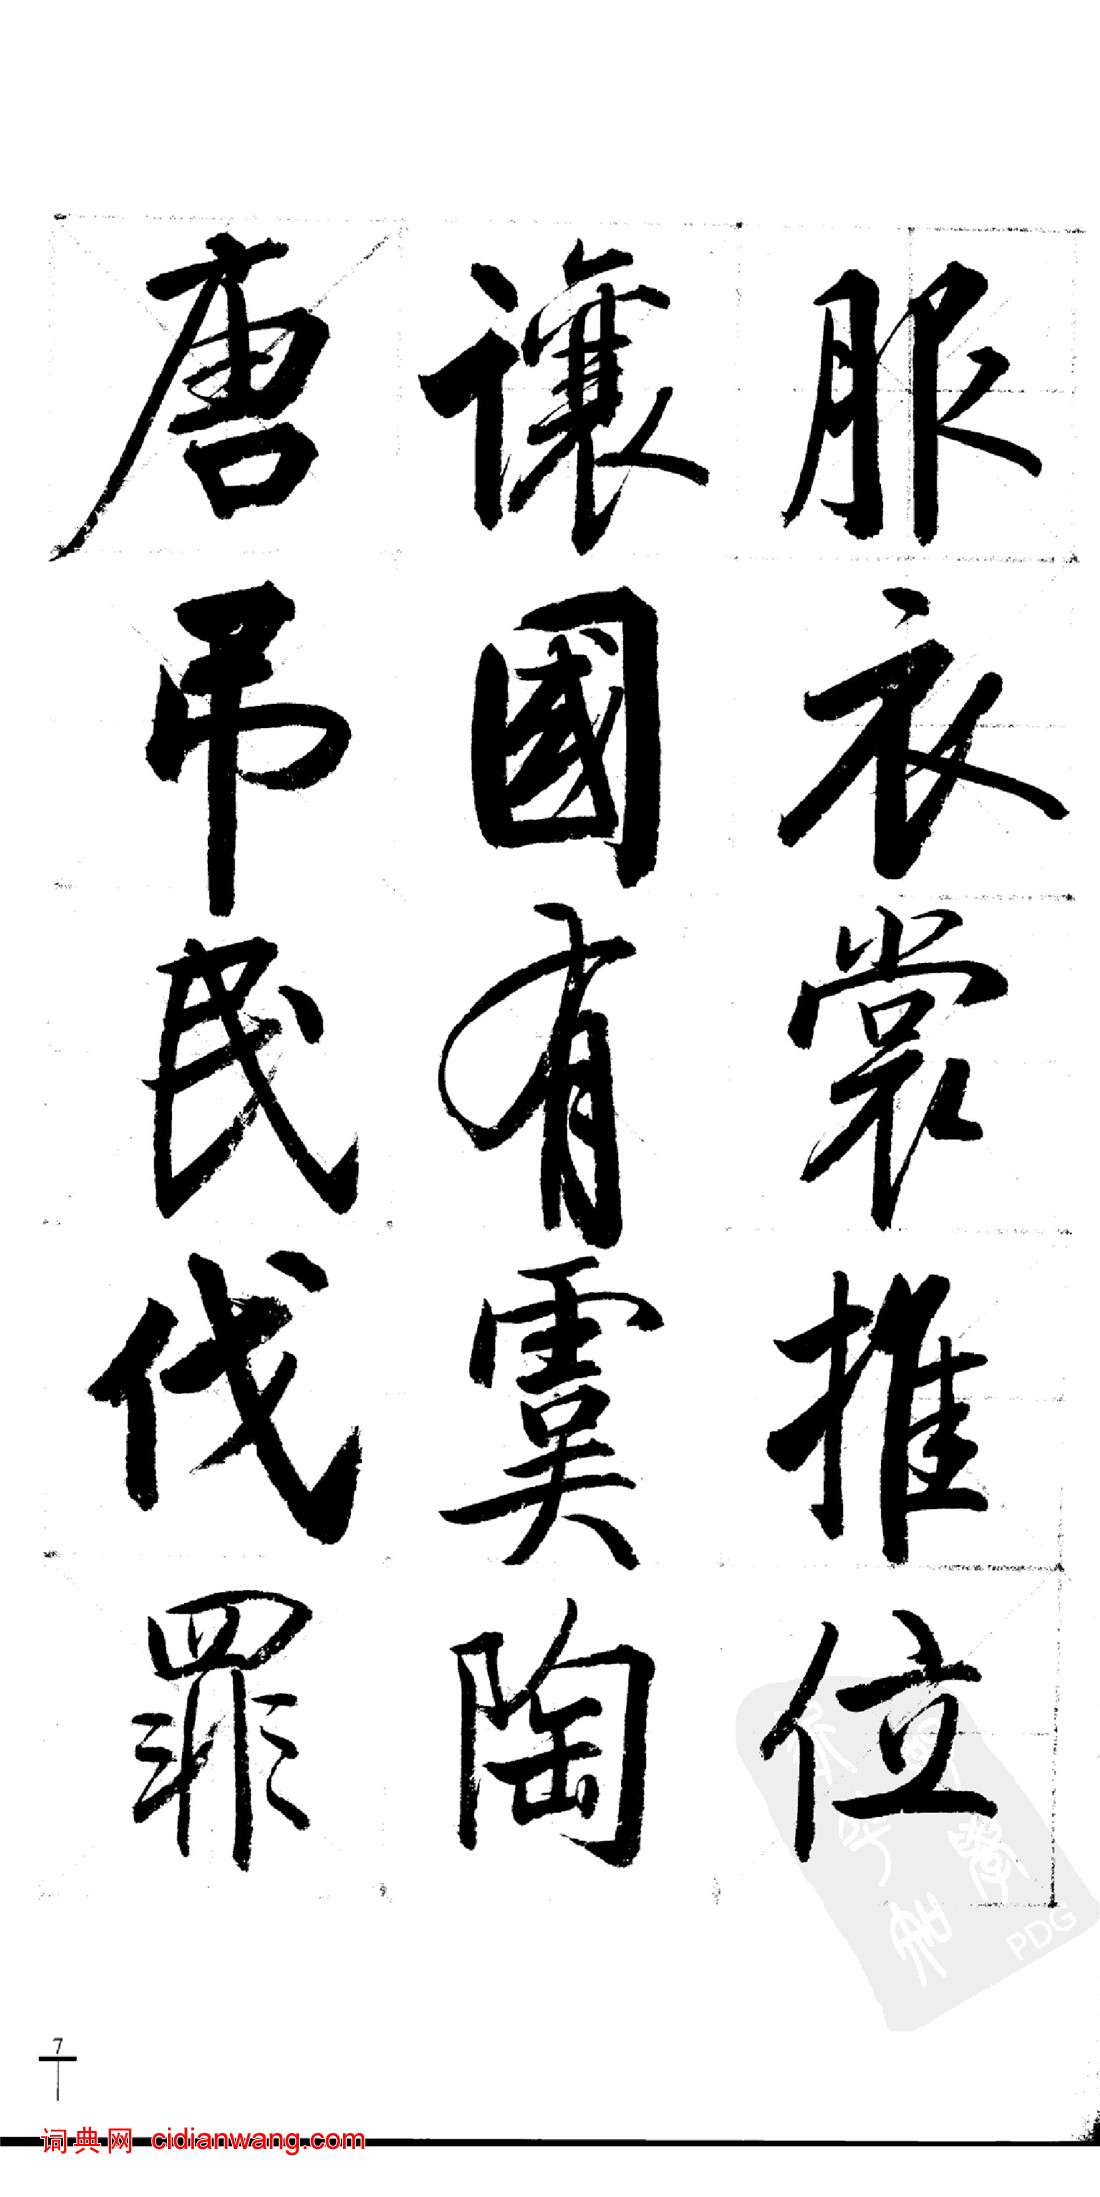 服衣裳推位
讓國有虞陶
唐弔民伐罪
7
词典网 cidianwang.com
PDG